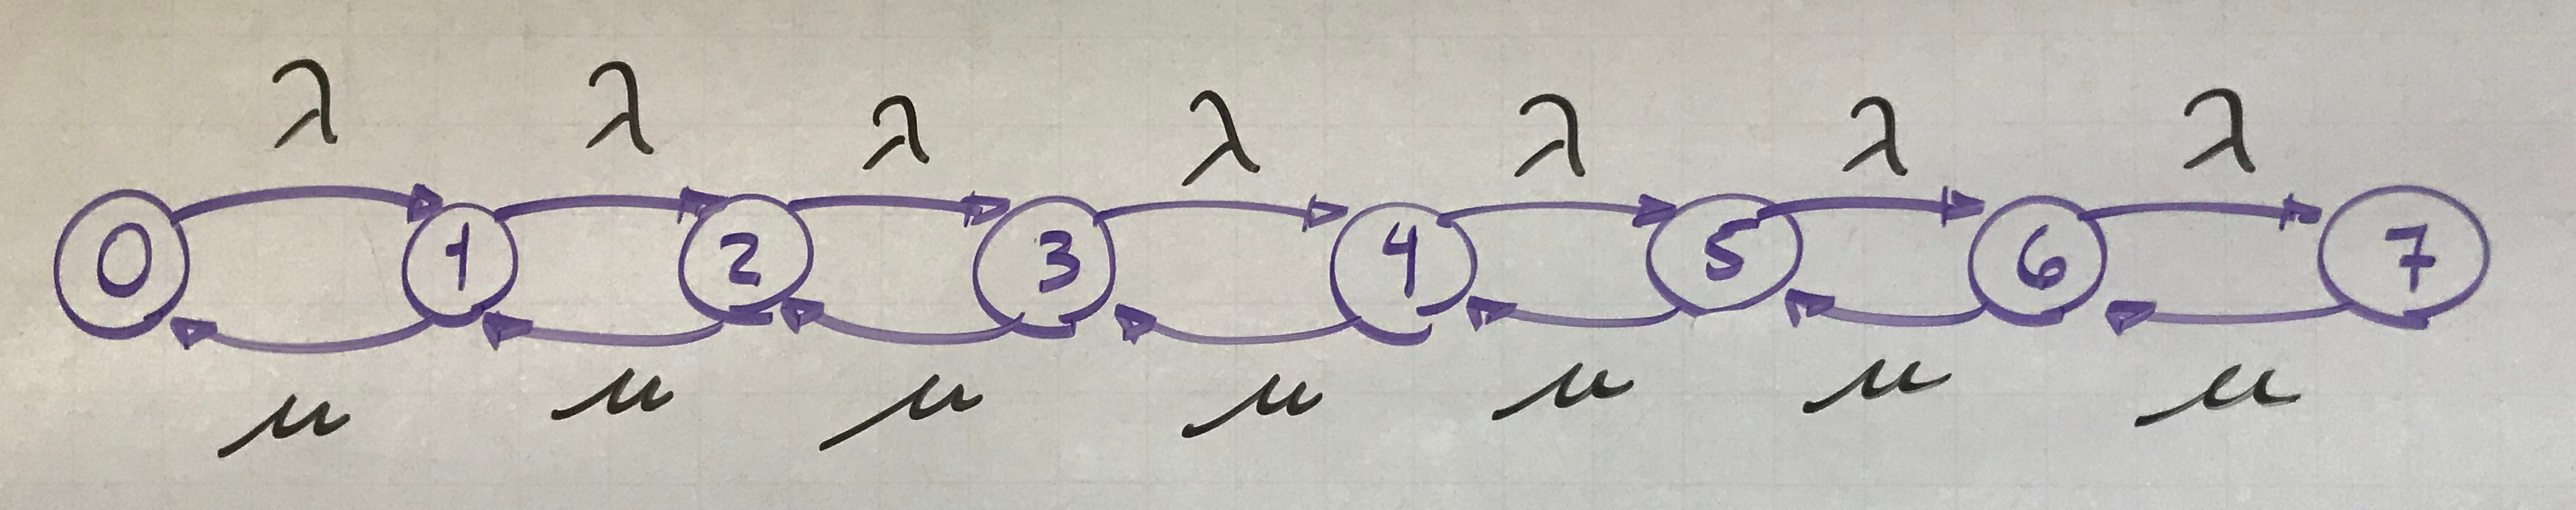 λ λ λ λ λ λ λ
0 1 2 3 4 5 6 7
μ μ μ μ μ μ μ